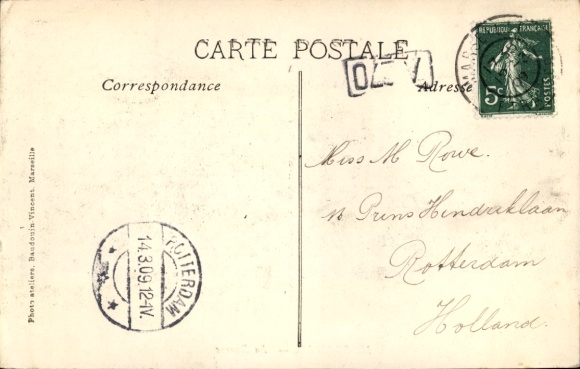 CARTE POSTALE
Correspondance
Adresse
RÉPUBLIQUE FRANÇAISE
5c
POSTES
Miss M Rowe.
Prins Hendriklaan
Rotterdam
Holland.
ROTTERDAM
14.3.09.12-1V.
Photo ateliers, Baudouin Vincent, Marseille